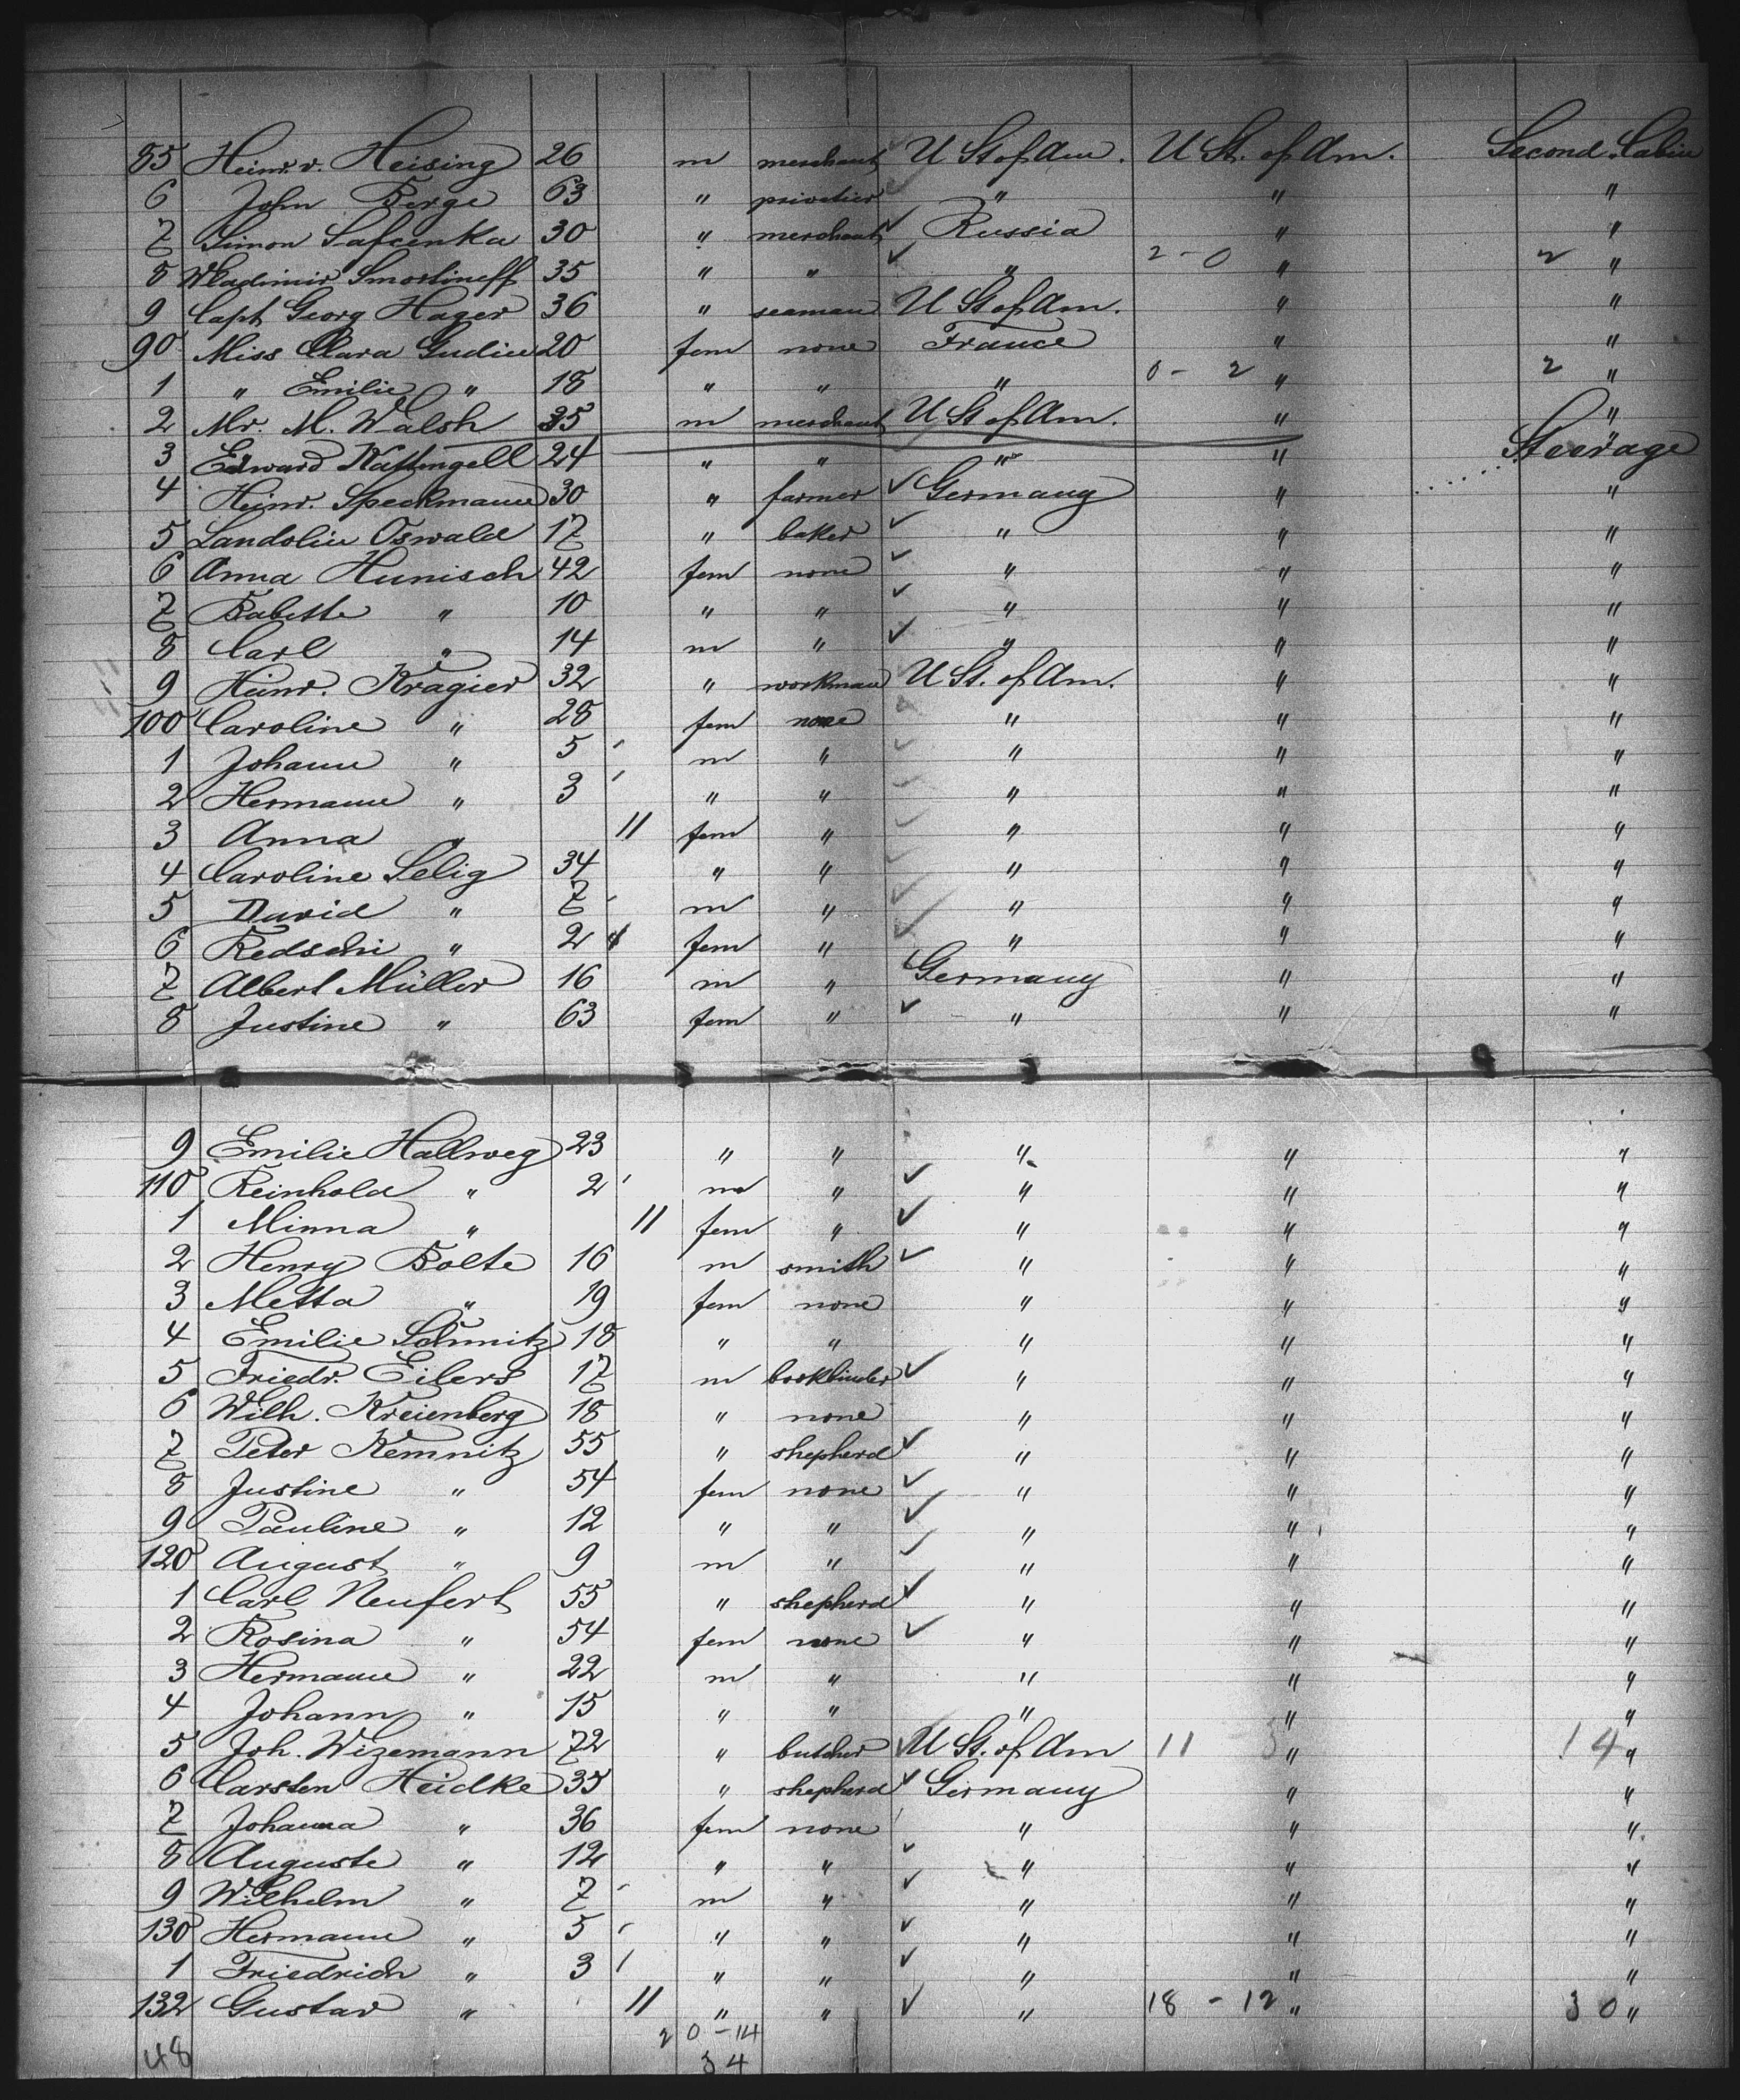 85 Heinr. v. Heising 26 m merchant U St of Am. U St. of Am. Second Cabin
6 John Berge 63 " privatier " " "
7 Simon Safcenka 30 " merchant Russia " "
8 Wladimir Smostineff 35 " " " 2-0 " 2 "
9 Capt Georg Hager 36 " seaman U St of Am. " "
90 Miss Clara Gudin 20 fem none France " "
1 " Emilie " 18 " " " 0-2 " 2 "
2 Mr. M. Walsh 35 m merchant U St of Am. " "
3 Edward Nattengell 24 " " " " Steerage
4 Heinr. Speckmann 30 " farmer Germany " "
5 Landolin Oswald 17 " baker " " "
6 Anna Hunisch 42 fem none " " "
7 Babette " 10 " " " " "
8 Carl " 14 m " " " "
9 Heinr. Kragier 32 " workman U St. of Am. " "
100 Caroline " 28 fem none " " "
1 Johann " 5 m " " " "
2 Hermann " 3 " " " " "
3 Anna " 11 fem " " " "
4 Caroline Selig 34 " " " " "
5 David " 7 m " " " "
6 Redschi " 2 fem " " " "
7 Albert Müller 16 m " Germany " "
8 Justine " 63 fem " " " "
9 Emilie Hallweg 23 " " " " "
110 Reinhold " 2 m " " " "
1 Minna " 11 fem " " " "
2 Henry Bolte 16 m smith " " "
3 Metta " 19 fem none " " "
4 Emilie Schmitz 18 " " " " "
5 Friedr. Eilers 17 m bookbinder " " "
6 Wilh. Kreienberg 18 " none " " "
7 Peter Kemnitz 55 " shepherd " " "
8 Justine " 54 fem none " " "
9 Pauline " 12 " " " " "
120 August " 9 m " " " "
1 Carl Neufert 55 " shepherd " " "
2 Rosina " 54 fem none " " "
3 Hermann " 22 m " " " "
4 Johann " 15 " " " " "
5 Joh. Wizemann 72 " butcher U St. of Am 11 3 " 14 "
6 Carsten Heidke 35 " shepherd Germany " "
7 Johanna " 36 fem none " " "
8 Auguste " 12 " " " " "
9 Wilhelm " 7 m " " " "
130 Hermann " 5 " " " " "
1 Friedrich " 3 " " " " "
132 Gustav " 11 " " " 18 - 12 " 30 "
20-14
48 34